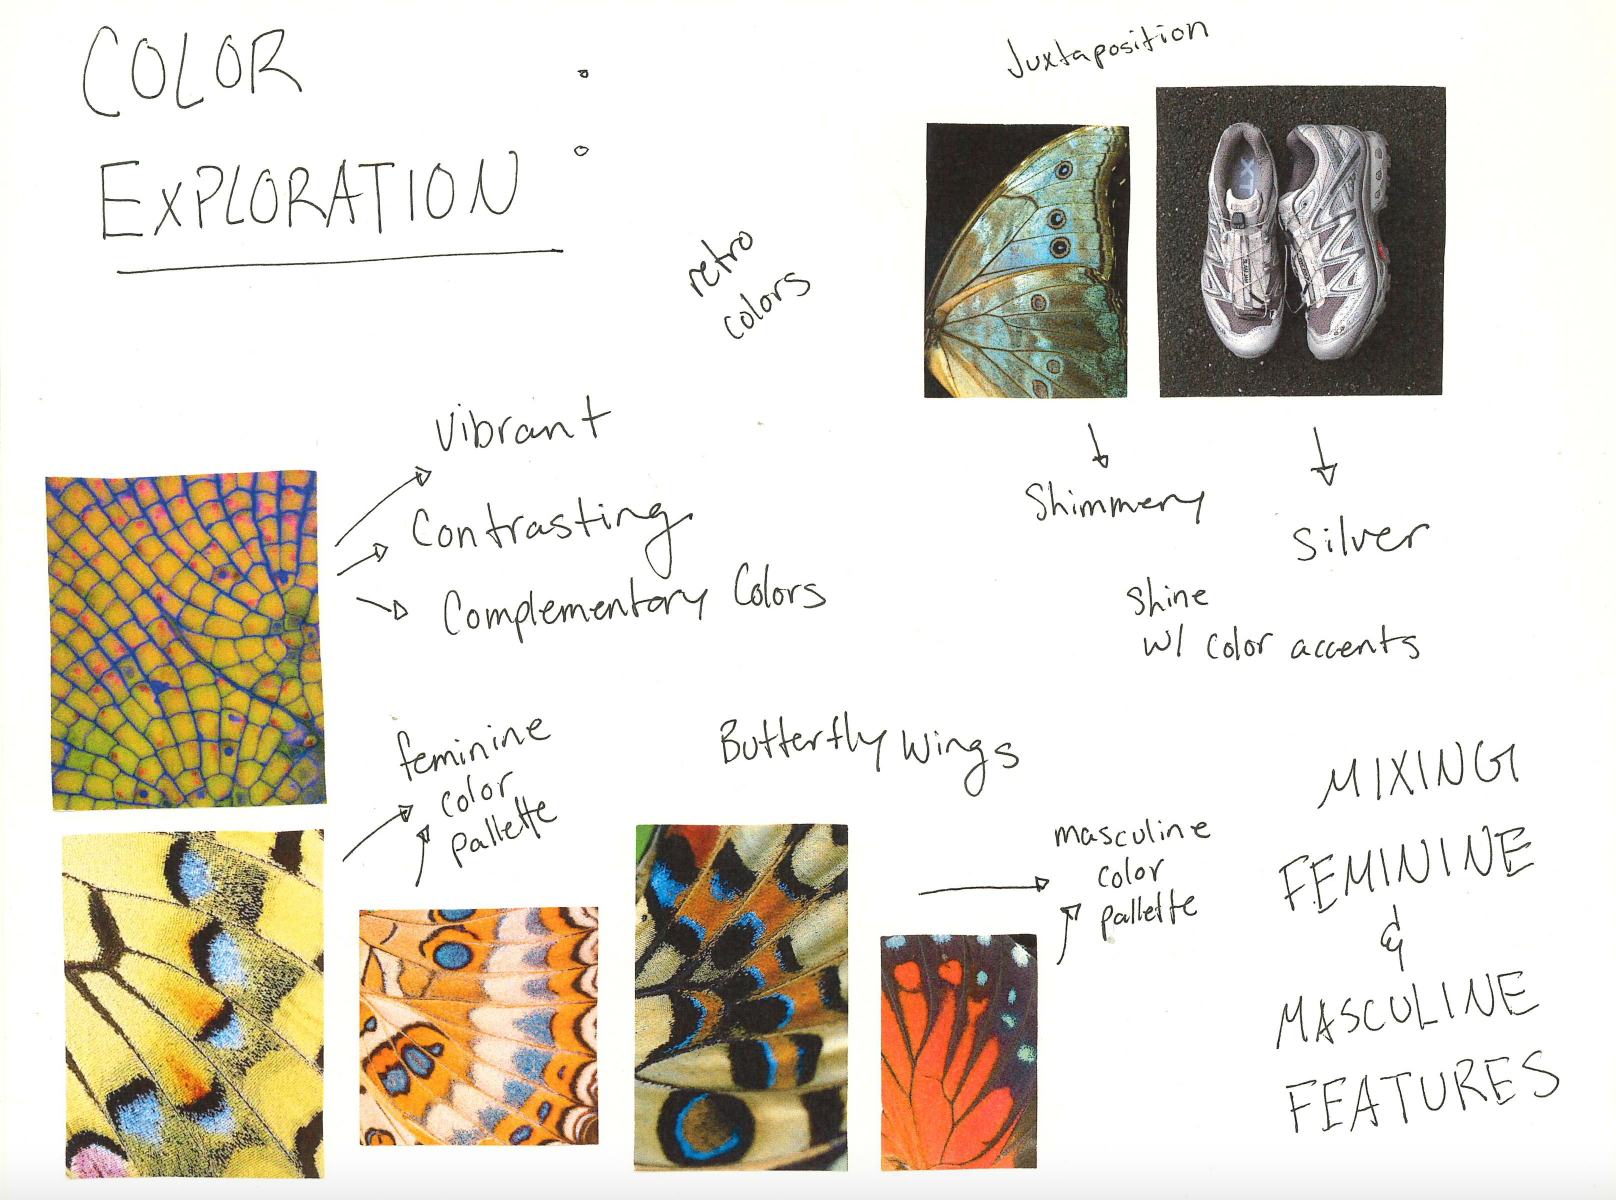 COLOR
EXPLORATION
Juxtaposition
retro
colors
XT
Vibrant
Contrasting
Complementary Colors
Shimmery
Silver
Shine
w/ color accents
feminine
color
pallette
Butterfly wings
masculine
color
pallette
MIXING
FEMININE
&
MASCULINE
FEATURES